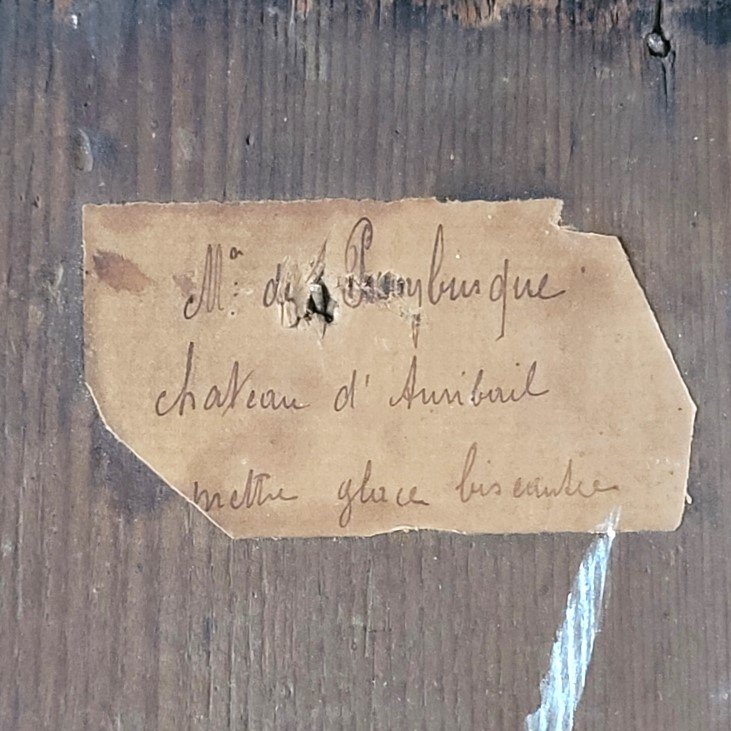 Mᵃ de Puybusque
chateau d' Auribail
mettre glace biseautée